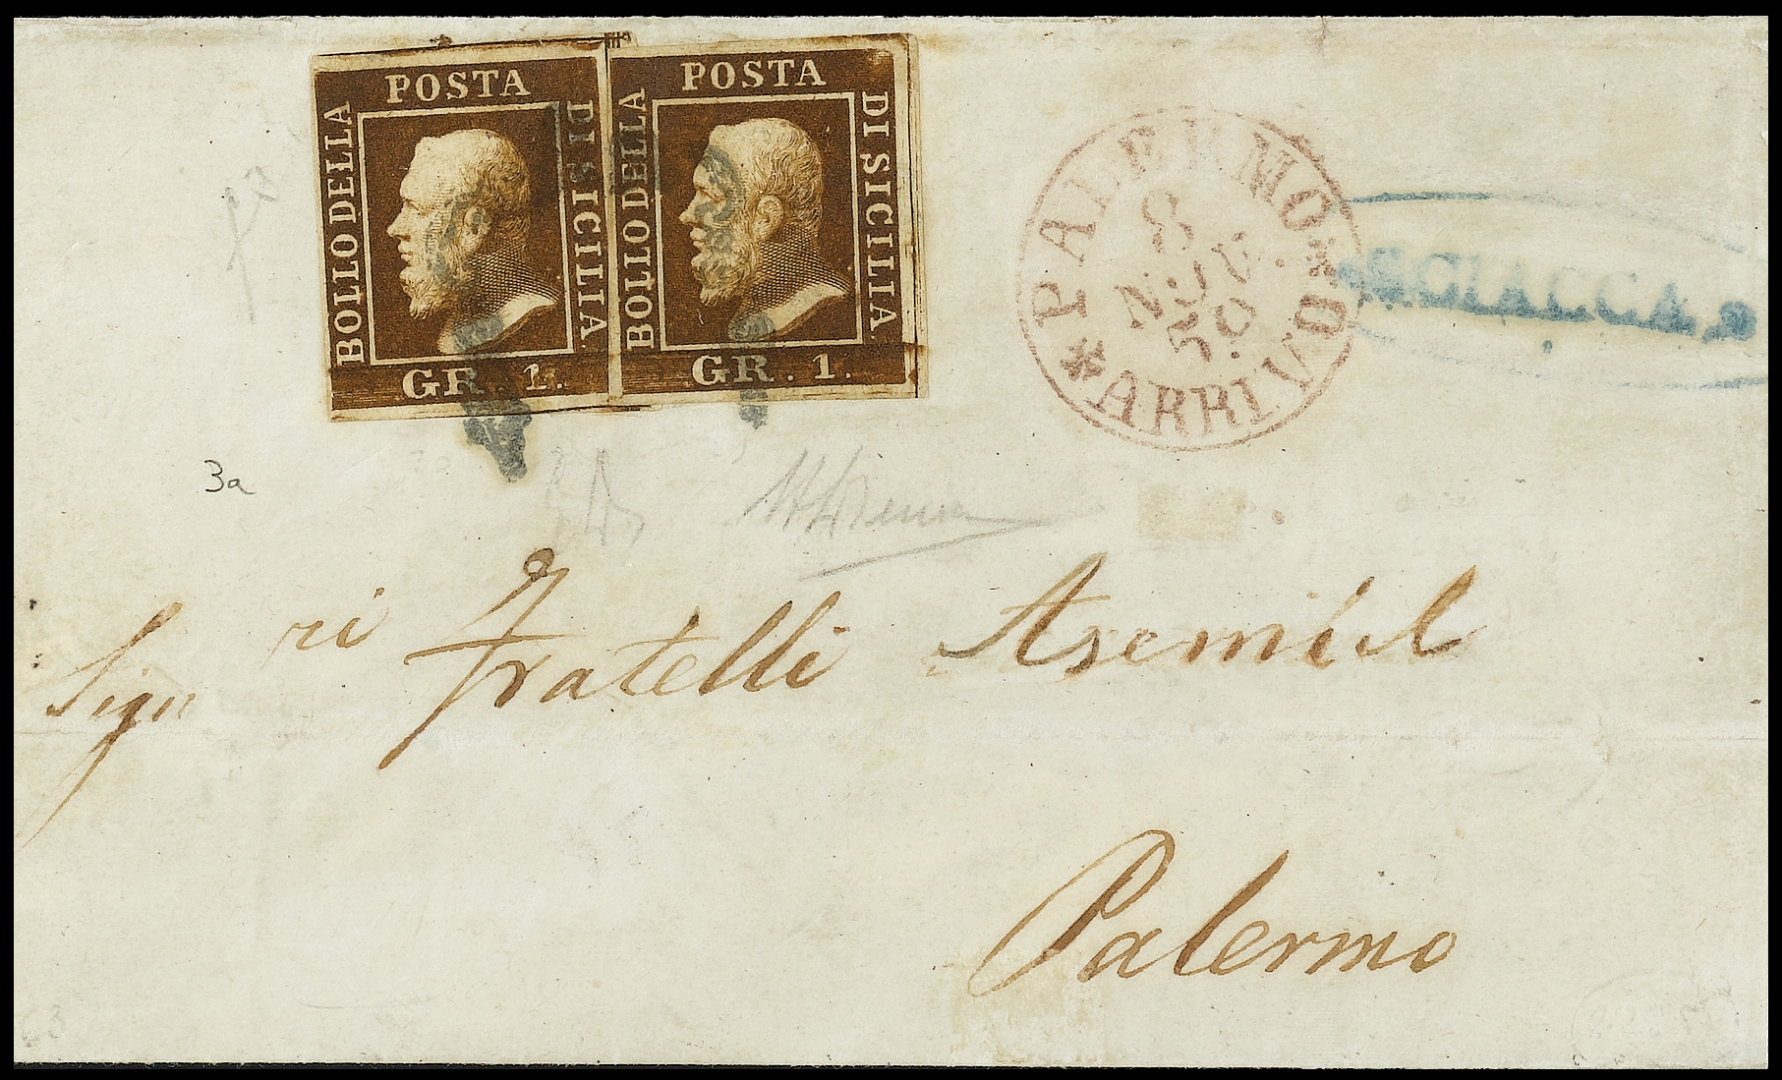 POSTA
BOLLO DELLA
DI SICILIA
GR. 1.
POSTA
BOLLO DELLA
DI SICILIA
GR. 1.
PALERMO
8
NOV.
59
* ARRIVO *
3a
Sign ri Fratelli
Palermo